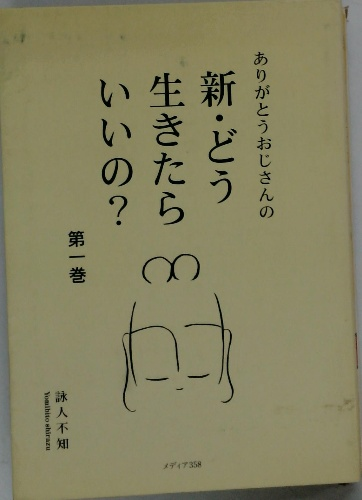 ありがとうおじさんの
新・どう
生きたら
いいの?
第一巻
詠人不知
Yomibito shirazu
メディア358